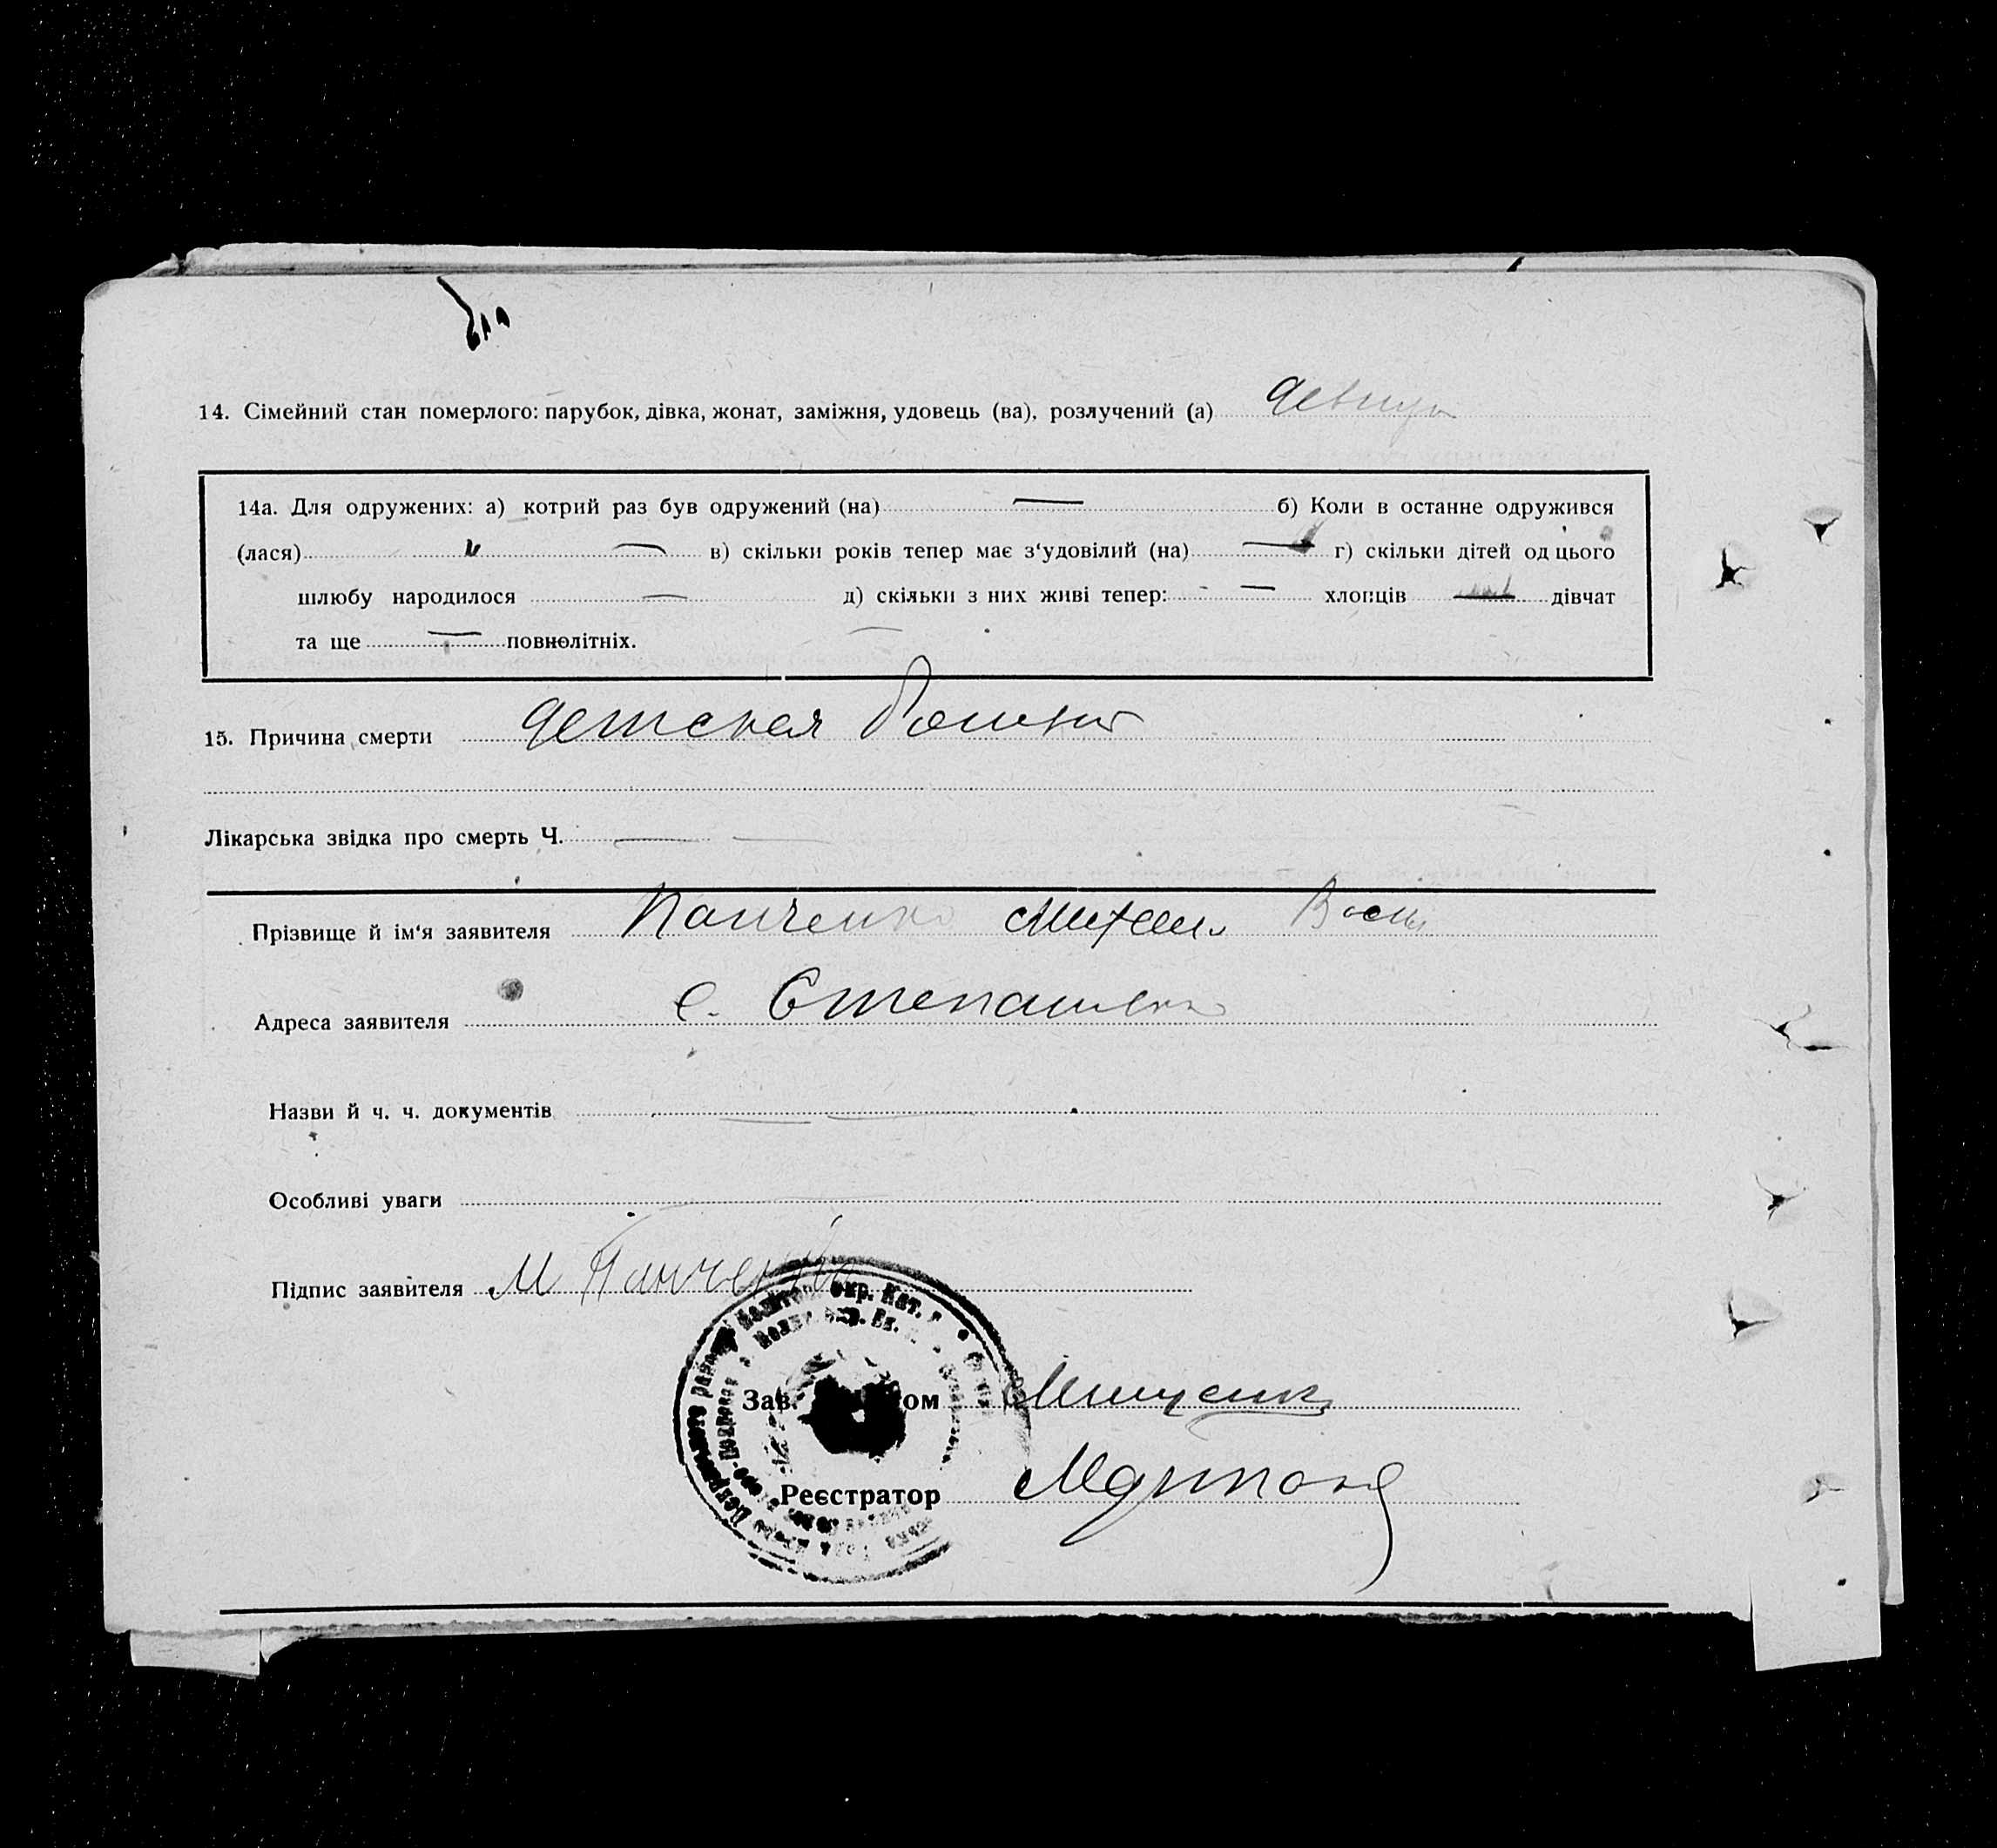 14. Сімейний стан померлого: парубок, дівка, жонат, заміжня, удовець (ва), розлучений (а) девица
14а. Для одружених: а) котрий раз був одружений (на) — б) Коли в останне одружився
(лася) — в) скільки років тепер має з‘удовілий (на) — г) скільки дітей од цього
шлюбу народилося — д) скільки з них живі тепер: — хлопців — дівчат
та ще — повнолітніх.
15. Причина смерти детская
Лікарська звідка про смерть Ч. —
Прізвище й ім‘я заявителя Панченко Михаил
Адреса заявителя с. Степашки
Назви й ч. ч. документів —
Особливі уваги
Підпис заявителя М Панченко
Зав. ом
Реєстратор